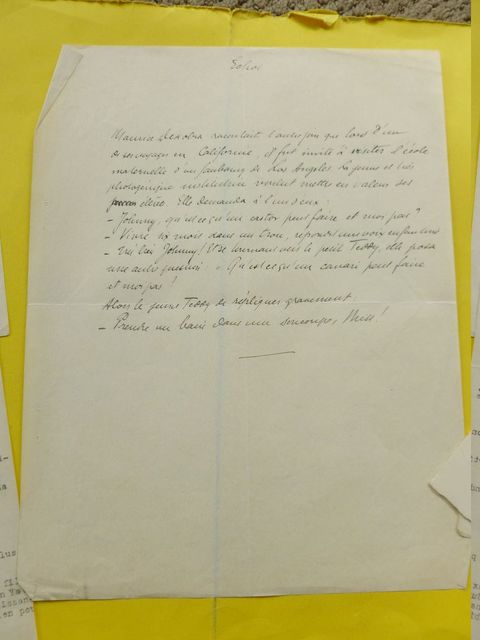 Echos
Maurice Dekobra racontait l'autre jour que lors d'un
de ses voyages en Californie, il fut invité à visiter l'école
maternelle d'un faubourg de Los Angeles. La jeune et très
photogénique institutrice voulait mettre en valeur ses
jeunes élèves. Elle demanda à l'un d'eux :
- Johnny, qu'est ce qu'un castor peut faire et moi pas ?
- Vivre six mois dans un trou, répondit une voix enfantine
- Très bien Johnny ! Et se tournant vers le petit Teddy, elle posa
une autre question : - Qu'est ce qu'un canari peut faire
et moi pas !
Alors le jeune Teddy de répliquer gravement :
- Prendre un bain dans une soucoupe, Miss !
i-
a
lus
fil
n
lissan
en pou